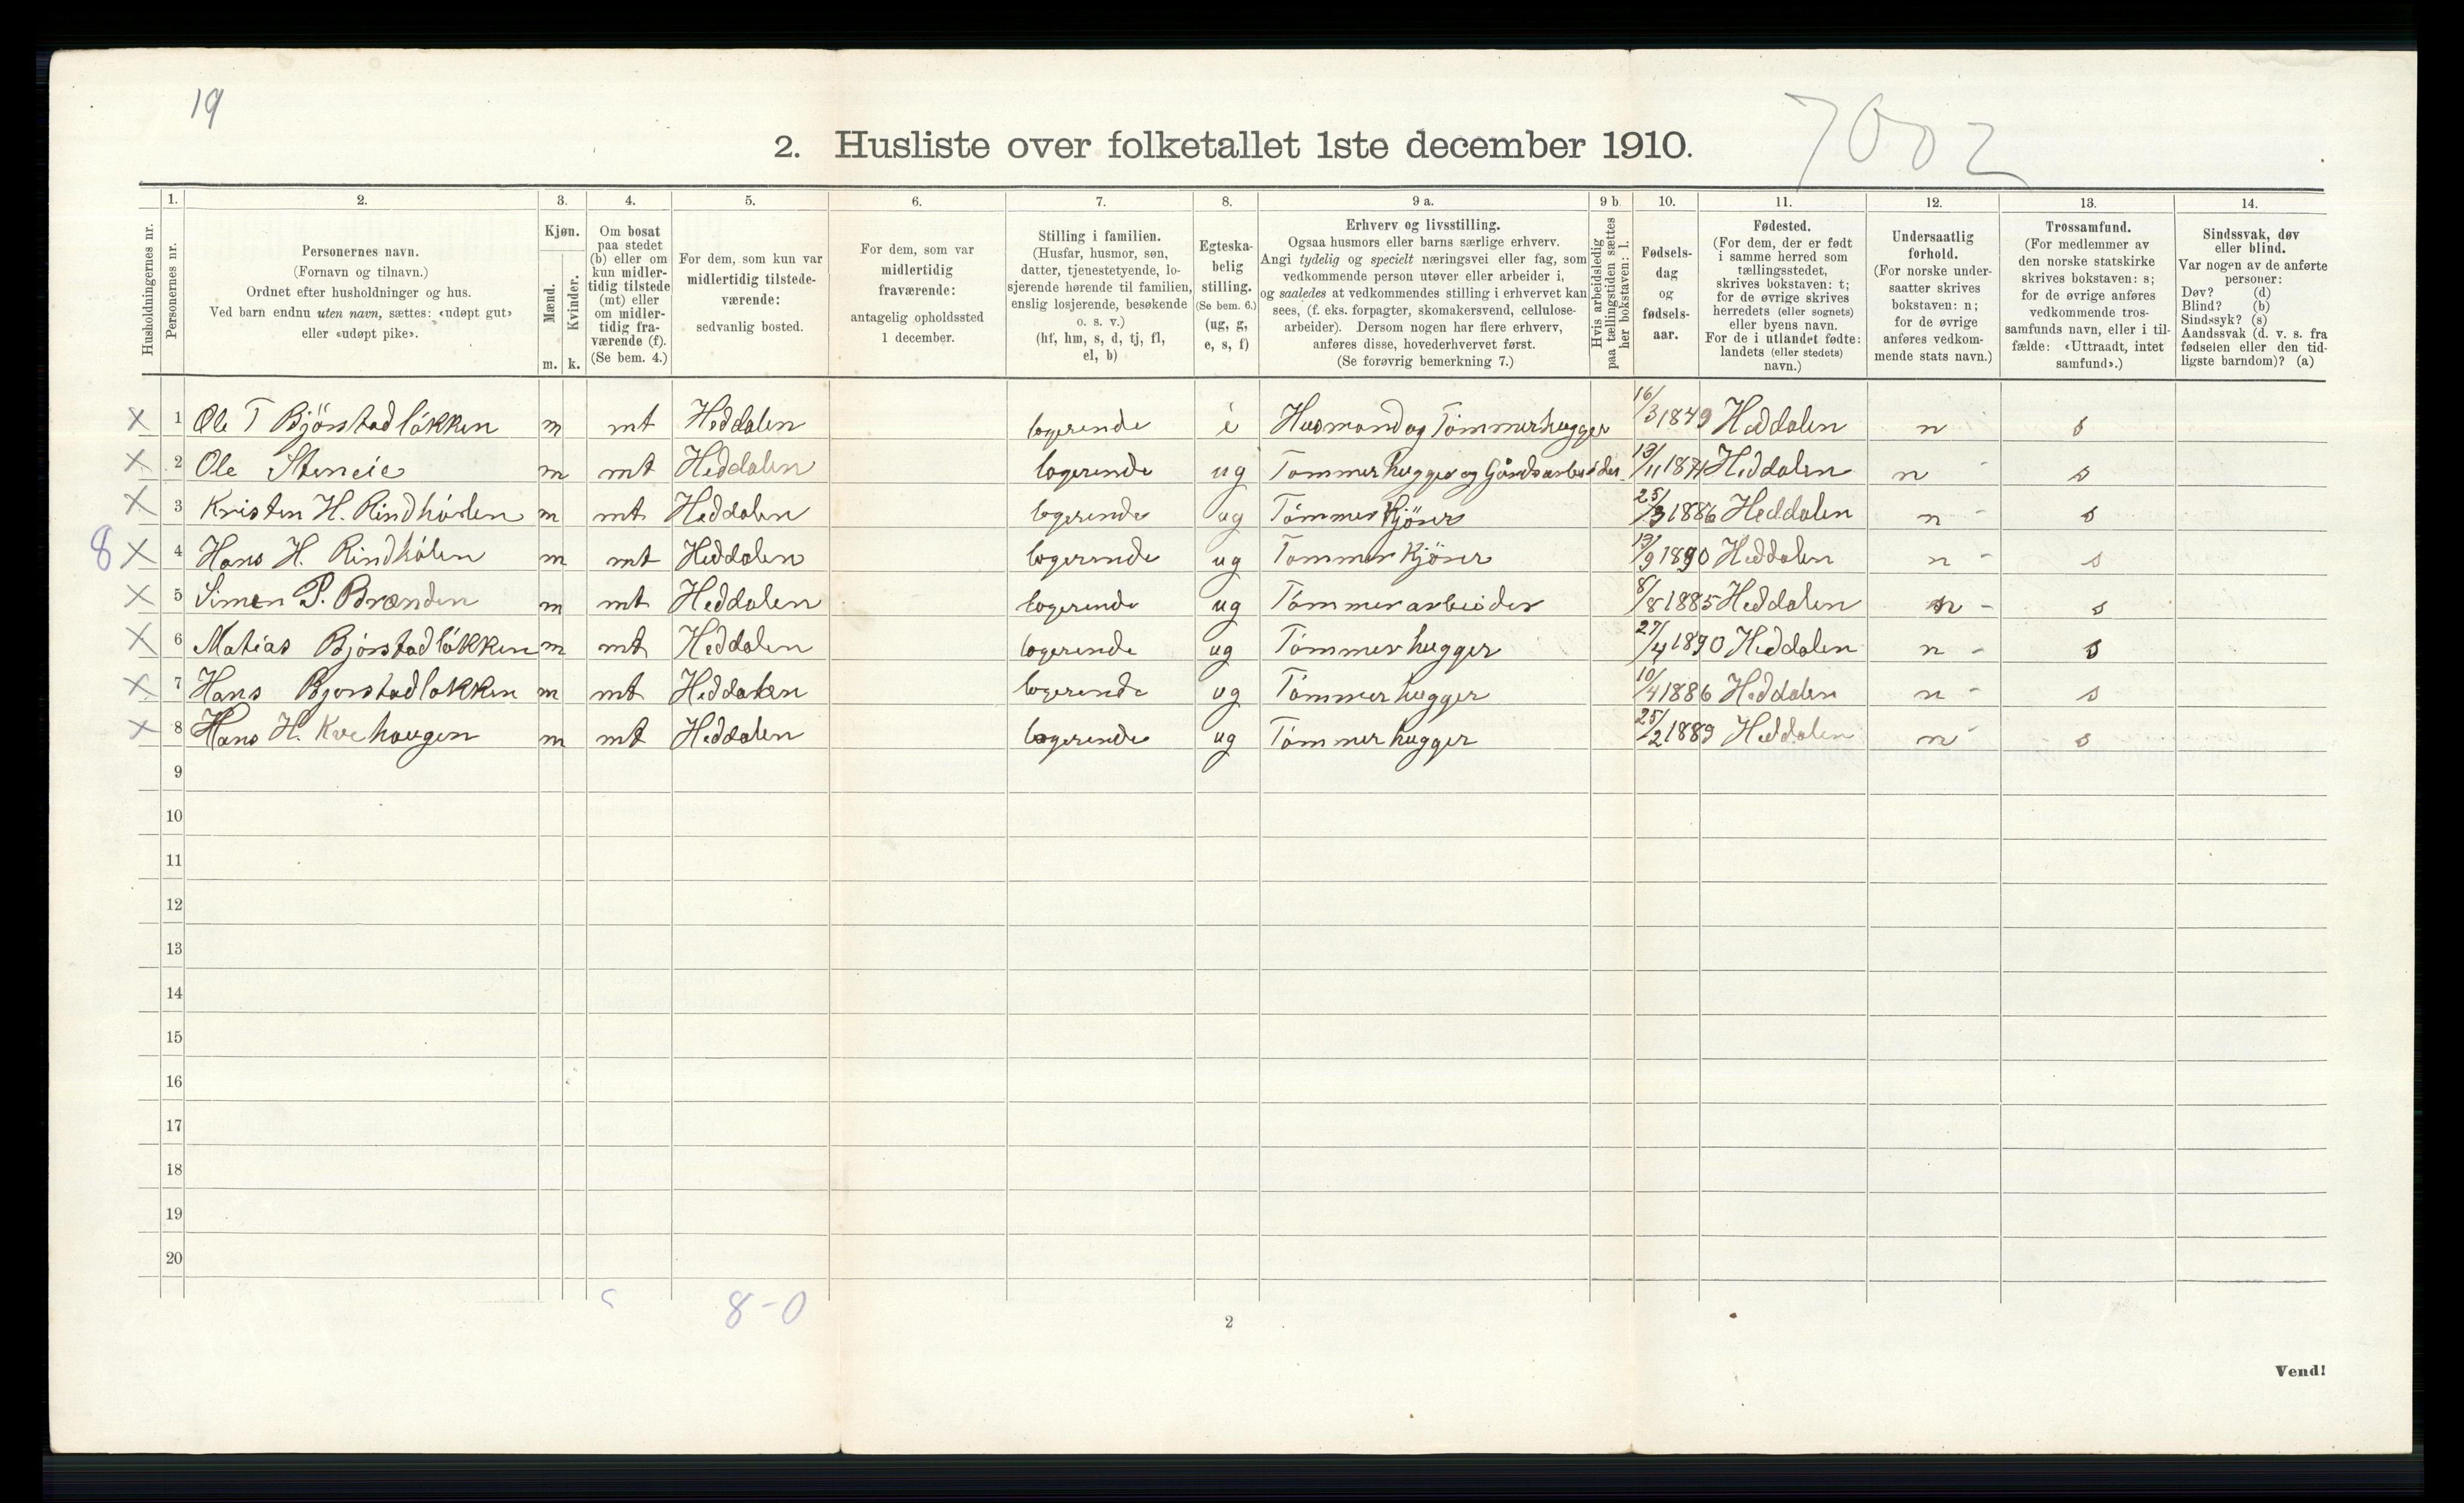 19
7002
2. Husliste over folketallet 1ste december 1910.
1. 2. 3. 4. 5. 6. 7. 8. 9 a. 9 b. 10. 11. 12. 13. 14.
Husholdningernes nr.
Personernes nr.
Personernes navn.
(Fornavn og tilnavn.)
Ordnet efter husholdninger og hus.
Ved barn endnu uten navn, sættes: «udøpt gut»
eller «udøpt pike».
Kjøn.
Mænd.
Kvinder.
m. k.
Om bosat
paa stedet
(b) eller om
kun midler-
tidig tilstede
(mt) eller
om midler-
tidig fra-
værende (f).
(Se bem. 4.)
For dem, som kun var
midlertidig tilstede-
værende:
sedvanlig bosted.
For dem, som var
midlertidig
fraværende:
antagelig opholdssted
1 december.
Stilling i familien.
(Husfar, husmor, søn,
datter, tjenestetyende, lo-
sjerende hørende til familien,
enslig losjerende, besøkende
o. s. v.)
(hf, hm, s, d, tj, fl,
el, b)
Egteska-
belig
stilling.
(Se bem. 6.)
(ug, g,
e, s, f)
Erhverv og livsstilling.
Ogsaa husmors eller barns særlige erhverv.
Angi tydelig og specielt næringsvei eller fag, som
vedkommende person utøver eller arbeider i,
og saaledes at vedkommendes stilling i erhvervet kan
sees, (f. eks. forpagter, skomakersvend, cellulose-
arbeider). Dersom nogen har flere erhverv,
anføres disse, hovederhvervet først.
(Se forøvrig bemerkning 7.)
Hvis arbeidsledig
paa tællingstiden sættes
her bokstaven: l.
Fødsels-
dag
og
fødsels-
aar.
Fødested.
(For dem, der er født
i samme herred som
tællingsstedet,
skrives bokstaven: t;
for de øvrige skrives
herredets (eller sognets)
eller byens navn.
For de i utlandet fødte:
landets (eller stedets)
navn.)
Undersaatlig
forhold.
(For norske under-
saatter skrives
bokstaven: n;
for de øvrige
anføres vedkom-
mende stats navn.)
Trossamfund.
(For medlemmer av
den norske statskirke
skrives bokstaven: s;
for de øvrige anføres
vedkommende tros-
samfunds navn, eller i til-
fælde: «Uttraadt, intet
samfund».)
Sindssvak, døv
eller blind.
Var nogen av de anførte
personer:
Døv? (d)
Blind? (b)
Sindssyk? (s)
Aandssvak (d. v. s. fra
fødselen eller den tid-
ligste barndom)? (a)
X 1 Ole T Bjørstadløkken m mt Heddalen logerende e Husmand og Tømmerhugger 16/3 1849 Heddalen n s
X 2 Ole Steneie m mt Heddalen logerende ug Tømmerhugger og Gårdsarbeider 13/11 1871 Heddalen n - s
X 3 Kristen H. Rindhølen m mt Heddalen logerende ug Tømmer Kjører 25/3 1886 Heddalen n - s
8 X 4 Hans H. Rindhølen m mt Heddalen logerende ug Tømmer Kjører 13/9 1890 Heddalen n - s
X 5 Simen P. Brænden m mt Heddalen logerende ug Tømmerarbeider 8/8 1885 Heddalen n - s
X 6 Matias Bjørstadløkken m mt Heddalen logerende ug Tømmerhugger 27/4 1890 Heddalen n - s
X 7 Hans Bjørstadløkken m mt Heddalen logerende ug Tømmerhugger 10/4 1886 Heddalen n - s
X 8 Hans H. Kvehaugen m mt Heddalen logerende ug Tømmerhugger 25/2 1889 Heddalen n - s
9
10
11
12
13
14
15
16
17
18
19
20
8-0
2
Vend!